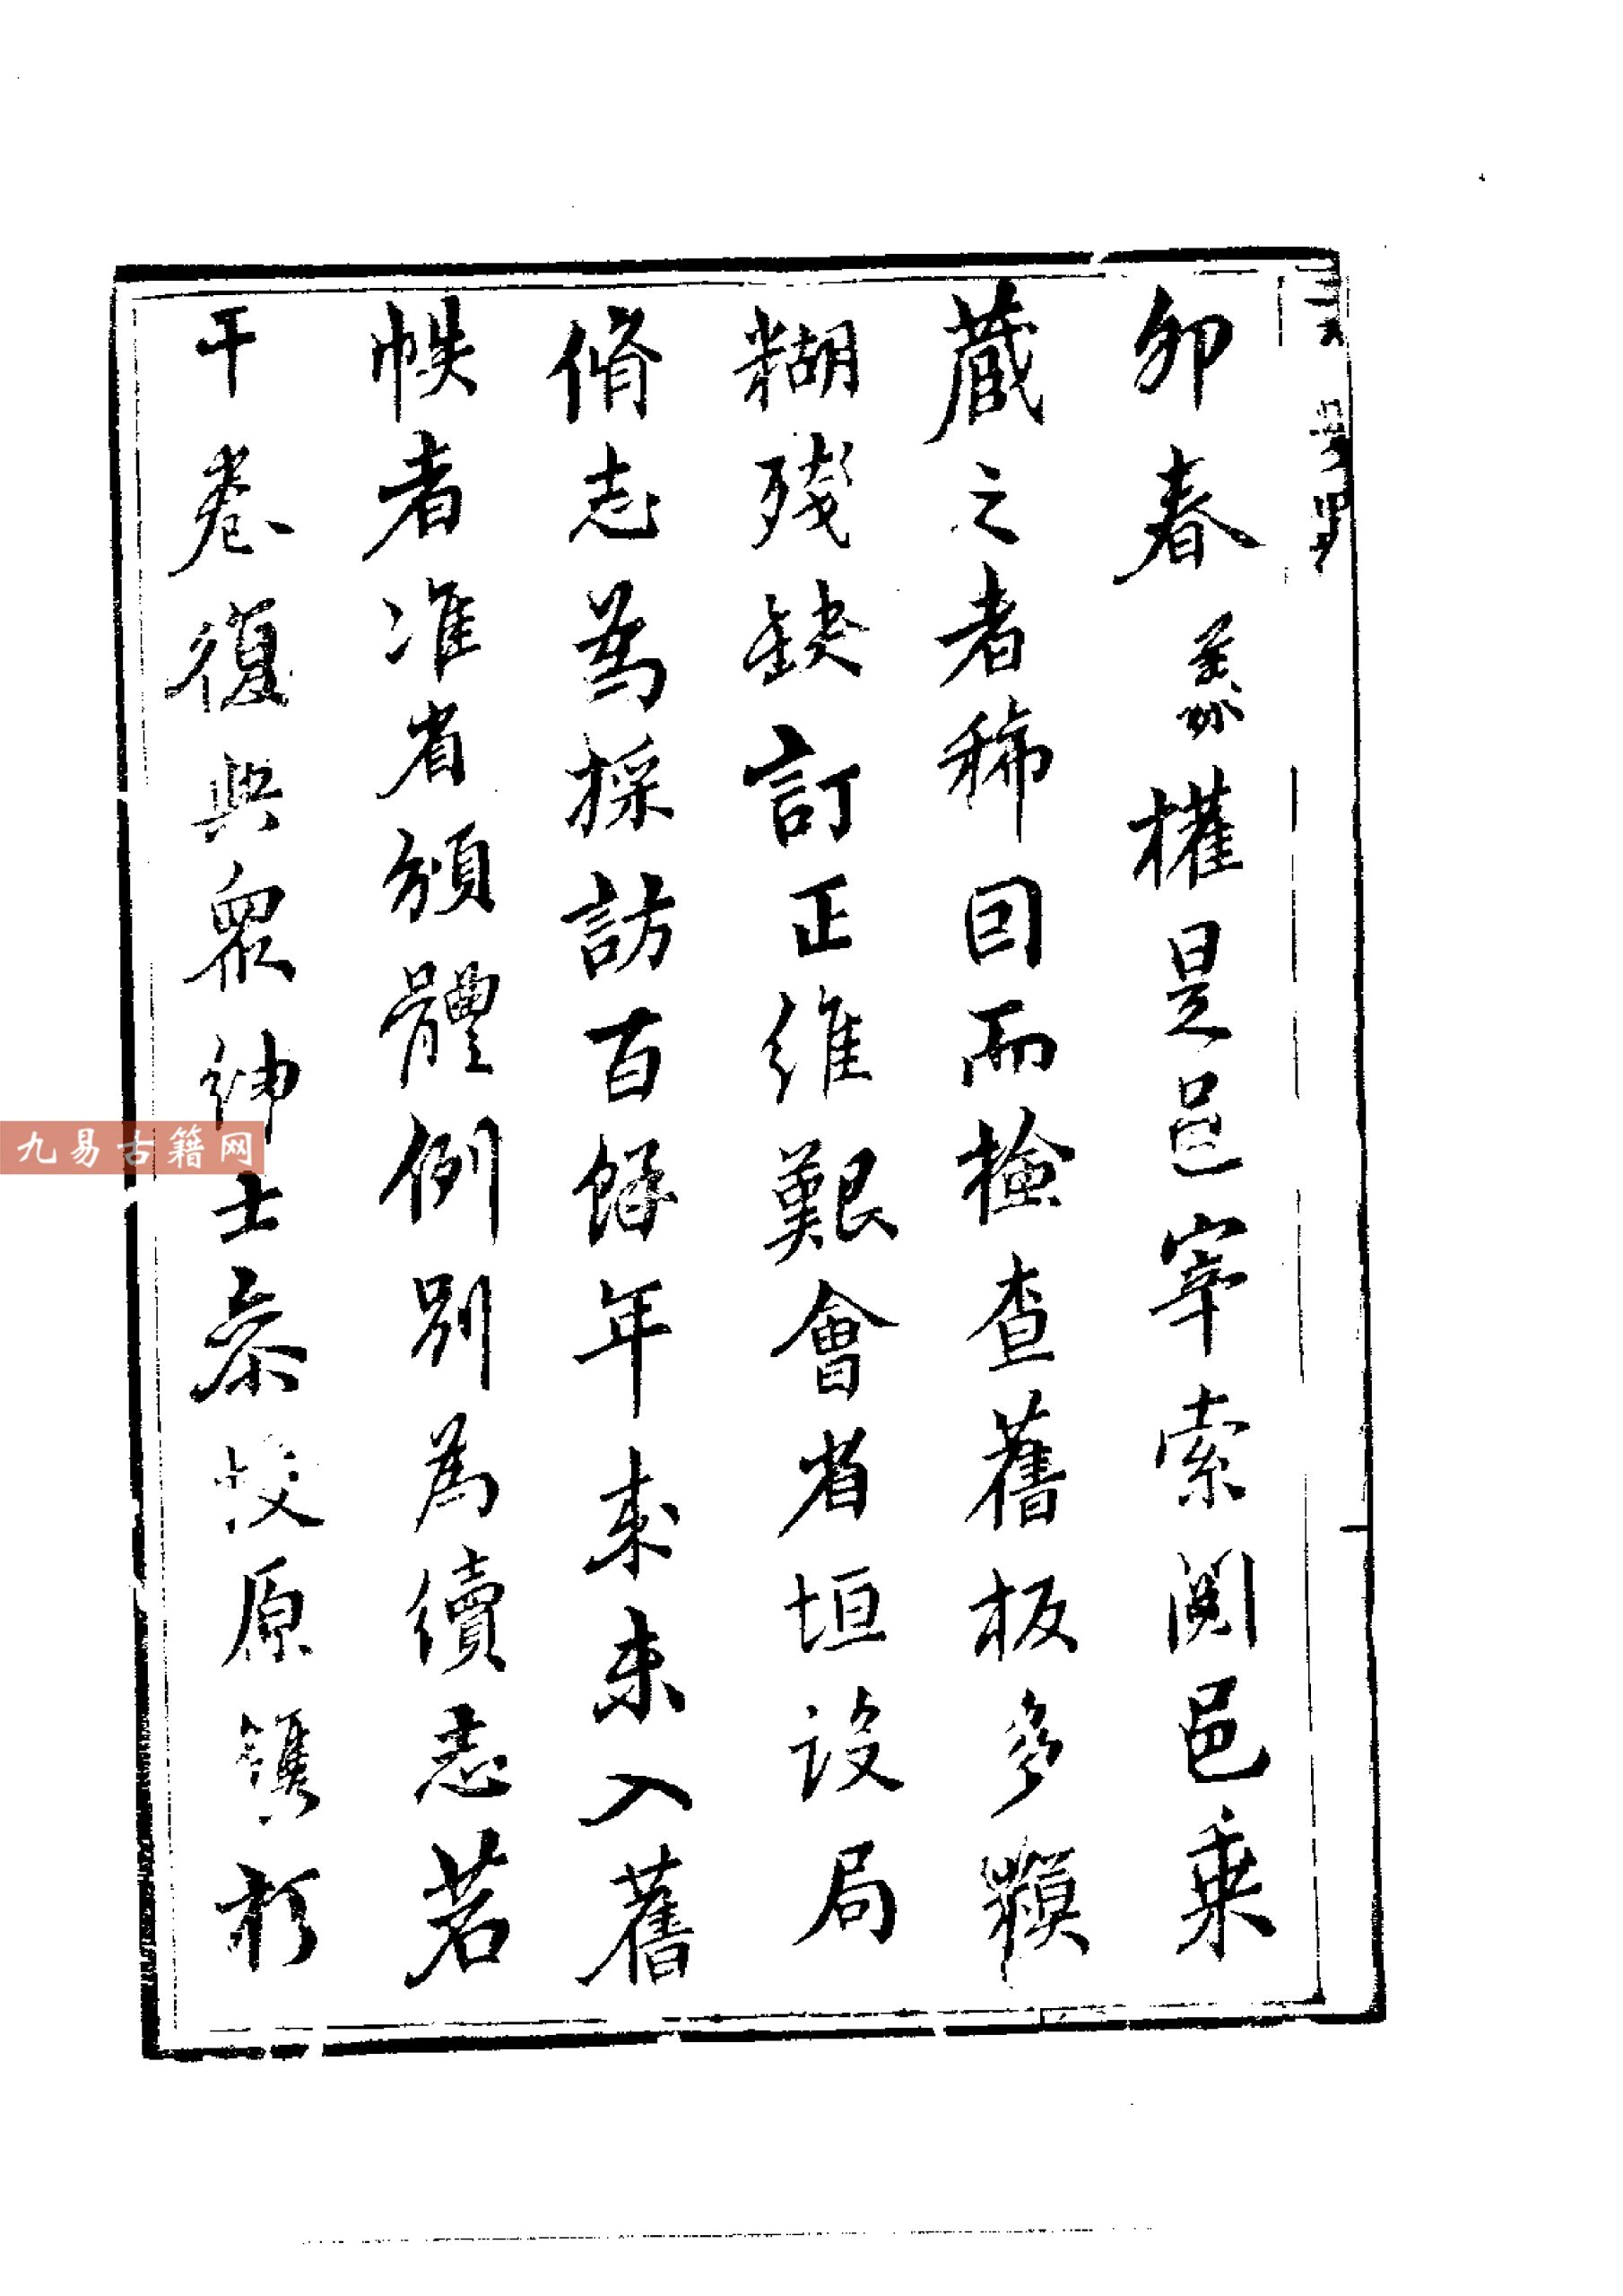 卯春 權是邑宰索閱邑乘
藏之者稀因而檢查舊板多糢
糊殘缺訂正維艱會省垣設局
脩志為採訪百餘年來未入舊
帙者准省頒體例別為續志若
干卷復與眾紳士叅校原鐫於
九易古籍网